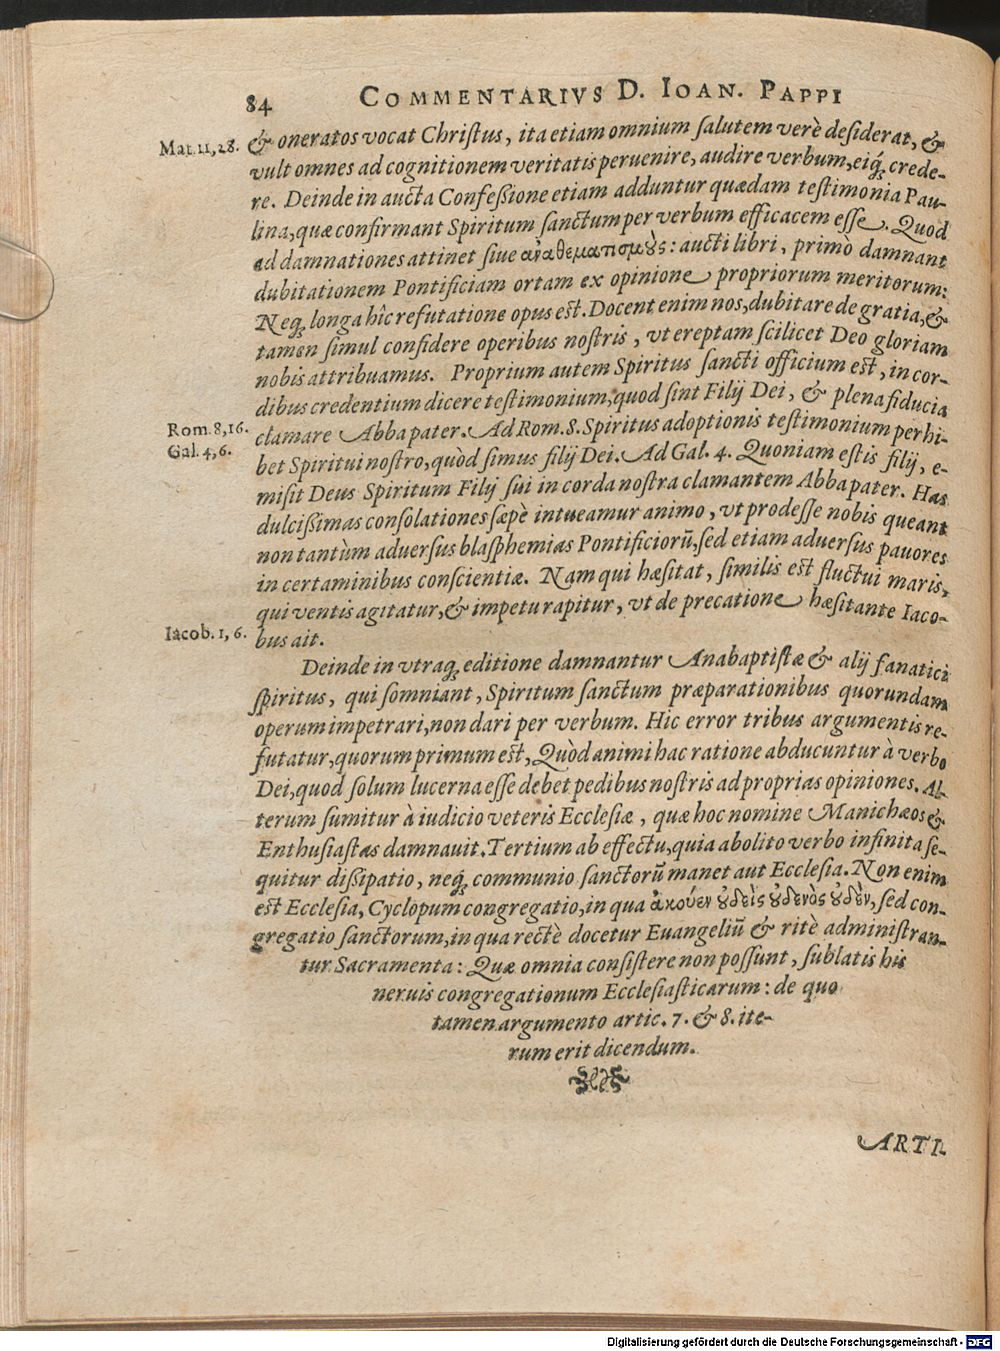 84 COMMENTARIVS D. IOAN. PAPPI
Mat. 11, 28. & oneratos vocat Christus, ita etiam omnium salutem verè desiderat, &
vult omnes ad cognitionem veritatis peruenire, audire verbum, eiq́; crede-
re. Deinde in aucta Confessione etiam adduntur quædam testimonia Pau-
lina, quæ confirmant Spiritum sanctum per verbum efficacem esse. Quod
ad damnationes attinet siue ἀναθεματισμοὺς: aucti libri, primò damnant
dubitationem Pontificiam ortam ex opinione propriorum meritorum:
Neq; longa hîc refutatione opus est. Docent enim nos, dubitare de gratia, &
tamen simul confidere operibus nostris, vt ereptam scilicet Deo gloriam
nobis attribuamus. Proprium autem Spiritus sancti officium est, in cor-
dibus credentium dicere testimonium, quod sint Filij Dei, & plena fiducia
Rom. 8, 16. clamare Abba pater. Ad Rom. 8. Spiritus adoptionis testimonium perhi-
Gal. 4, 6. bet Spiritui nostro, quòd simus filij Dei. Ad Gal. 4. Quoniam estis filij, e-
misit Deus Spiritum Filij sui in corda nostra clamantem Abba pater. Has
dulcissimas consolationes sæpè intueamur animo, vt prodesse nobis queant
non tantùm aduersus blasphemias Pontificiorũ, sed etiam aduersus pauores
in certaminibus conscientiæ. Nam qui hæsitat, similis est fluctui maris,
qui ventis agitatur, & impetu rapitur, vt de precatione hæsitante Iaco-
Iacob. 1, 6. bus ait.
Deinde in vtraq; editione damnantur Anabaptistæ & alij fanatici
spiritus, qui somniant, Spiritum sanctum præparationibus quorundam
operum impetrari, non dari per verbum. Hic error tribus argumentis re-
futatur, quorum primum est, Quòd animi hac ratione abducuntur à verbo
Dei, quod solum lucerna esse debet pedibus nostris ad proprias opiniones. Al-
terum sumitur à iudicio veteris Ecclesiæ, quæ hoc nomine Manichæos &
Enthusiastas damnauit. Tertium ab effectu, quia abolito verbo infinita se-
quitur dissipatio, neq́; communio sanctorũ manet aut Ecclesia. Non enim
est Ecclesia, Cyclopum congregatio, in qua ἀκούει οὐδεὶς οὐδενὸς οὐδὲν, sed con-
gregatio sanctorum, in qua rectè docetur Euangeliũ & ritè administran-
tur Sacramenta: Quæ omnia consistere non possunt, sublatis his
neruis congregationum Ecclesiasticarum: de quo
tamen argumento artic. 7. & 8. ite-
rum erit dicendum.
ARTI-
Digitalisierung gefördert durch die Deutsche Forschungsgemeinschaft - DFG